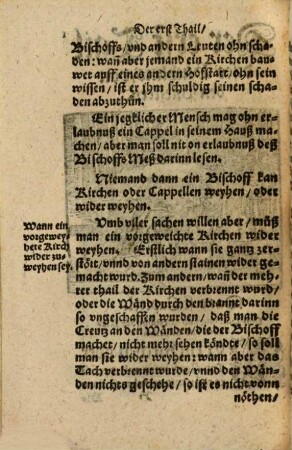 Der erst Thail/
Bischoffs/ vnd andern Leuten ohn scha-
den: wañ aber jemand ein Kirchen bau-
wet auff eines andern Hofstatt/ ohn sein
wissen/ ist er jhm schuldig seinen scha-
den abzuthůn.
Ein jegklicher Mensch mag ohn er-
laubnuß ein Cappel in seinem Hauß ma-
chen/ aber man soll nit on erlaubnuß deß
Bischoffs Meß darinn lesen.
Niemand dann ein Bischoff kan
Kirchen oder Cappellen weyhen/ oder
wider weyhen.
Wann ein
vorgewey
hete Kirch
wider zu-
weyhen sey.
Vmb viler sachen willen aber/ můß
man ein vorgeweichte Kirchen wider
weyhen. Erstlich wann sie gantz zer-
stött/ vnnd von andern stainen wider ge-
macht wurd. Zum andern/ wañ der meh-
rer thail der Kirchen verbrennt wurd/
oder die Wänd durch den brannt darinn
so vngeschaffen wurden/ daß man die
Creutz an den Wänden/ die der Bischoff
machet/ nicht mehr sehen köndte/ so soll
man sie wider weyhen: wann aber das
Tach verbrennt wurde/ vnnd den Wän-
den nichts geschehe/ so ist es nicht vonn
nöthen/